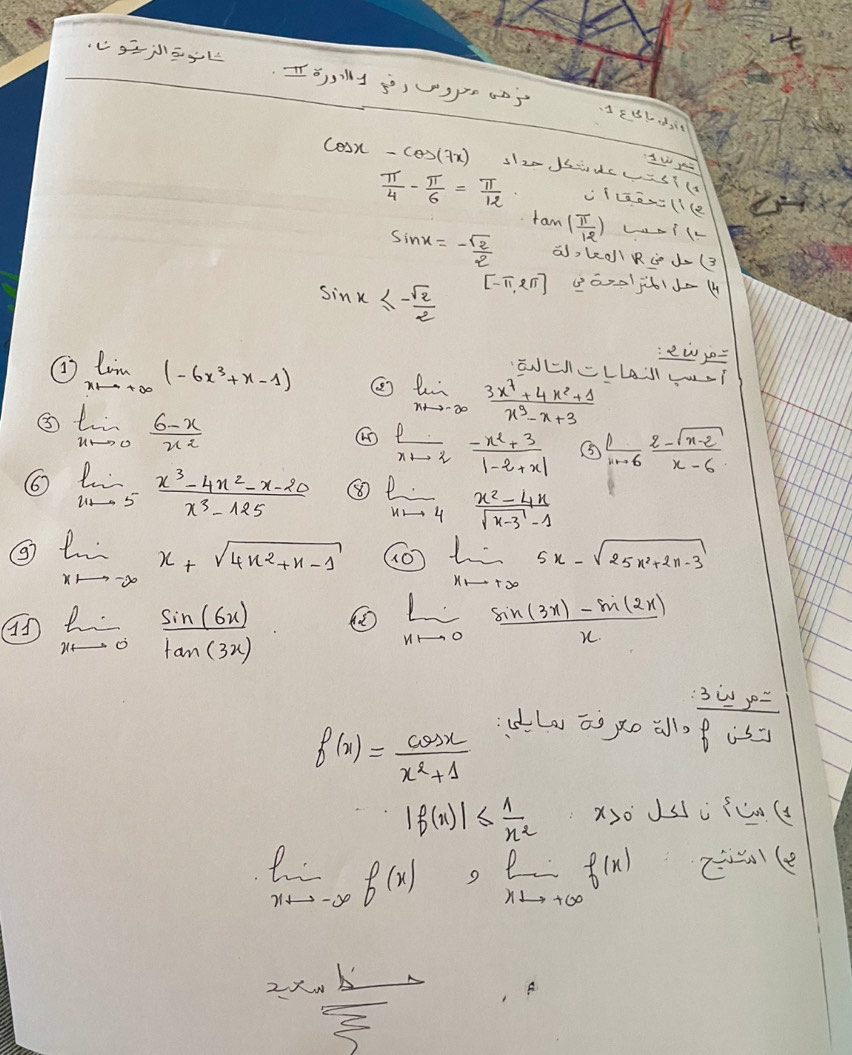 ثانوية الزيتونة
فرض محروس رقم 1 الدورة II
تمرين 1:
1) أكتب على شكل جداء cosx - cos(7x)
2) أ) تحقق أن π/4 - π/6 = π/12
ب) أحسب tan(π/12)
3) حل في R المعادلة sinx = -√2/2
4) حل المتراجحة في [-π, 2π]
sinx ≤ -√2/2
تمرين 2:
أحسب النهايات التالية:
① lim x→+∞ (-6x³+x-1) ② lim x→-∞ (3x⁷+4x²+1)/(x⁹-x+3)
③ lim x→0 (6-x)/x² ④ lim x→2 (-x²+3)/|-2+x| ⑤ lim x→6 (2-√(x-2))/(x-6)
⑥ lim x→5 (x³-4x²-x-20)/(x³-125) ⑧ lim x→4 (x²-4x)/(√(x-3)-1)
⑨ lim x→-∞ x+√(4x²+x-1) ⑩ lim x→+∞ 5x-√(25x²+2x-3)
⑪ lim x→0 sin(6x)/tan(3x) ⑫ lim x→0 (sin(3x)-sin(2x))/x
تمرين 3:
لتكن f دالة معرفة بمايلي:
f(x) = cosx/(x²+1)
1) بين أن لكل x>0 : |f(x)| ≤ 1/x²
2) استنتج lim x→+∞ f(x) و lim x→-∞ f(x)
حظ سعيد